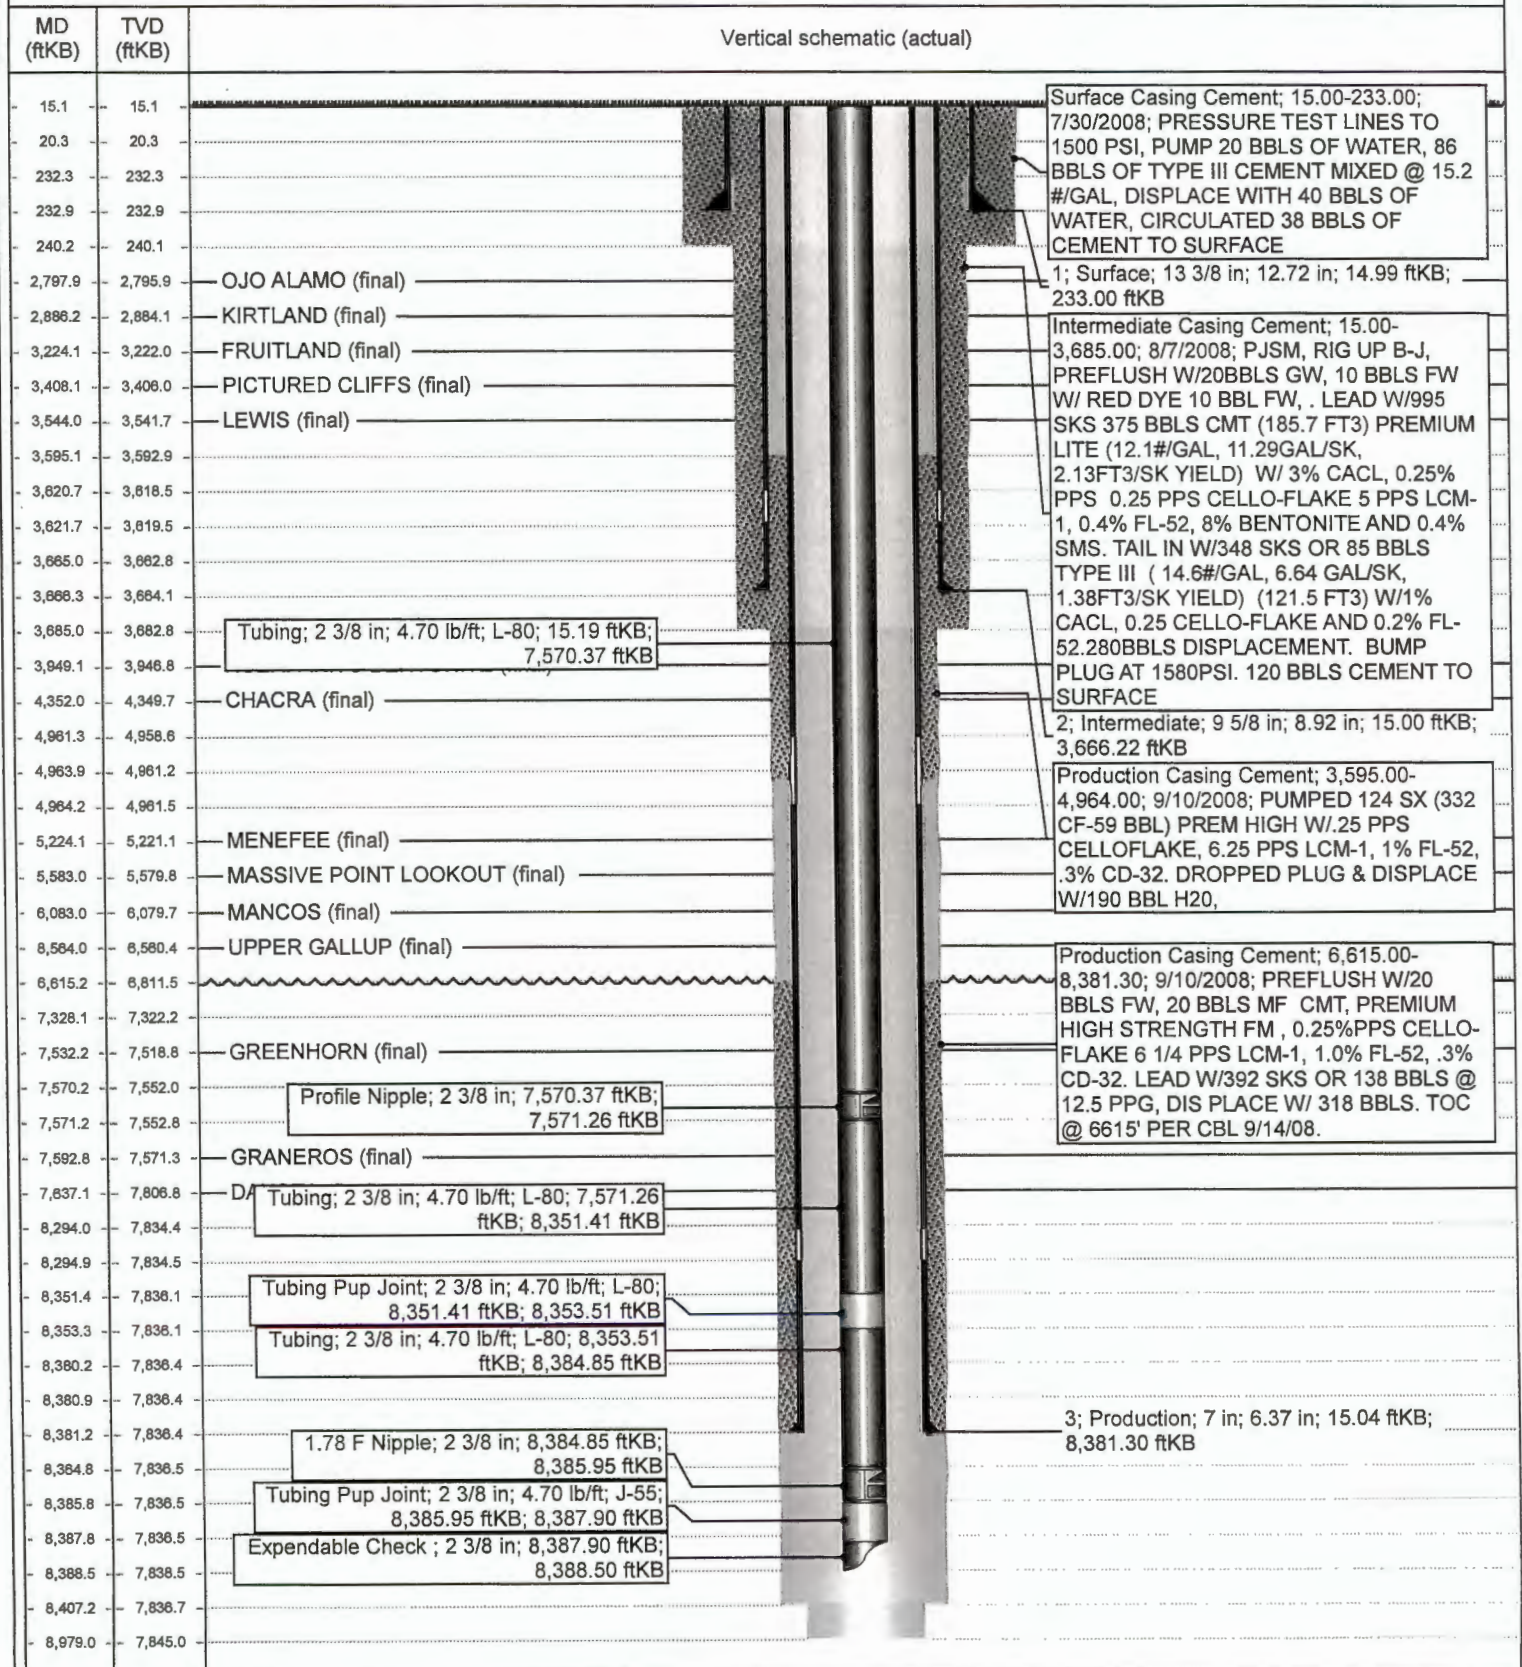 MD
(ftKB)
TVD
(ftKB)
Vertical schematic (actual)
15.1 15.1
20.3 20.3
232.3 232.3
232.9 232.9
240.2 240.1
2,797.9 2,795.9 OJO ALAMO (final)
2,886.2 2,884.1 KIRTLAND (final)
3,224.1 3,222.0 FRUITLAND (final)
3,408.1 3,406.0 PICTURED CLIFFS (final)
3,544.0 3,541.7 LEWIS (final)
3,595.1 3,592.9
3,620.7 3,618.5
3,621.7 3,619.5
3,665.0 3,662.8
3,666.3 3,664.1
3,685.0 3,682.8
3,949.1 3,946.8
4,352.0 4,349.7 CHACRA (final)
4,961.3 4,958.6
4,963.9 4,961.2
4,964.2 4,961.5
5,224.1 5,221.1 MENEFEE (final)
5,583.0 5,579.8 MASSIVE POINT LOOKOUT (final)
6,083.0 6,079.7 MANCOS (final)
6,564.0 6,560.4 UPPER GALLUP (final)
6,615.2 6,611.5
7,328.1 7,322.2
7,532.2 7,518.8 GREENHORN (final)
7,570.2 7,552.0
7,571.2 7,552.8
7,592.8 7,571.3 GRANEROS (final)
7,837.1 7,806.8 DA
8,294.0 7,834.4
8,294.9 7,834.5
8,351.4 7,836.1
8,353.3 7,836.1
8,380.2 7,836.4
8,380.9 7,836.4
8,381.2 7,836.4
8,384.8 7,836.5
8,385.8 7,836.5
8,387.8 7,836.5
8,388.5 7,836.5
8,407.2 7,836.7
8,979.0 7,845.0
Tubing; 2 3/8 in; 4.70 lb/ft; L-80; 15.19 ftKB;
7,570.37 ftKB
Profile Nipple; 2 3/8 in; 7,570.37 ftKB;
7,571.26 ftKB
Tubing; 2 3/8 in; 4.70 lb/ft; L-80; 7,571.26
ftKB; 8,351.41 ftKB
Tubing Pup Joint; 2 3/8 in; 4.70 lb/ft; L-80;
8,351.41 ftKB; 8,353.51 ftKB
Tubing; 2 3/8 in; 4.70 lb/ft; L-80; 8,353.51
ftKB; 8,384.85 ftKB
1.78 F Nipple; 2 3/8 in; 8,384.85 ftKB;
8,385.95 ftKB
Tubing Pup Joint; 2 3/8 in; 4.70 lb/ft; J-55;
8,385.95 ftKB; 8,387.90 ftKB
Expendable Check ; 2 3/8 in; 8,387.90 ftKB;
8,388.50 ftKB
Surface Casing Cement; 15.00-233.00;
7/30/2008; PRESSURE TEST LINES TO
1500 PSI, PUMP 20 BBLS OF WATER, 86
BBLS OF TYPE III CEMENT MIXED @ 15.2
#/GAL, DISPLACE WITH 40 BBLS OF
WATER, CIRCULATED 38 BBLS OF
CEMENT TO SURFACE
1; Surface; 13 3/8 in; 12.72 in; 14.99 ftKB;
233.00 ftKB
Intermediate Casing Cement; 15.00-
3,685.00; 8/7/2008; PJSM, RIG UP B-J,
PREFLUSH W/20BBLS GW, 10 BBLS FW
W/ RED DYE 10 BBL FW, . LEAD W/995
SKS 375 BBLS CMT (185.7 FT3) PREMIUM
LITE (12.1#/GAL, 11.29GAL/SK,
2.13FT3/SK YIELD) W/ 3% CACL, 0.25%
PPS 0.25 PPS CELLO-FLAKE 5 PPS LCM-
1, 0.4% FL-52, 8% BENTONITE AND 0.4%
SMS. TAIL IN W/348 SKS OR 85 BBLS
TYPE III ( 14.6#/GAL, 6.64 GAL/SK,
1.38FT3/SK YIELD) (121.5 FT3) W/1%
CACL, 0.25 CELLO-FLAKE AND 0.2% FL-
52.280BBLS DISPLACEMENT. BUMP
PLUG AT 1580PSI. 120 BBLS CEMENT TO
SURFACE
2; Intermediate; 9 5/8 in; 8.92 in; 15.00 ftKB;
3,666.22 ftKB
Production Casing Cement; 3,595.00-
4,964.00; 9/10/2008; PUMPED 124 SX (332
CF-59 BBL) PREM HIGH W/.25 PPS
CELLOFLAKE, 6.25 PPS LCM-1, 1% FL-52,
.3% CD-32. DROPPED PLUG & DISPLACE
W/190 BBL H20,
Production Casing Cement; 6,615.00-
8,381.30; 9/10/2008; PREFLUSH W/20
BBLS FW, 20 BBLS MF CMT, PREMIUM
HIGH STRENGTH FM , 0.25%PPS CELLO-
FLAKE 6 1/4 PPS LCM-1, 1.0% FL-52, .3%
CD-32. LEAD W/392 SKS OR 138 BBLS @
12.5 PPG, DIS PLACE W/ 318 BBLS. TOC
@ 6615' PER CBL 9/14/08.
3; Production; 7 in; 6.37 in; 15.04 ftKB;
8,381.30 ftKB